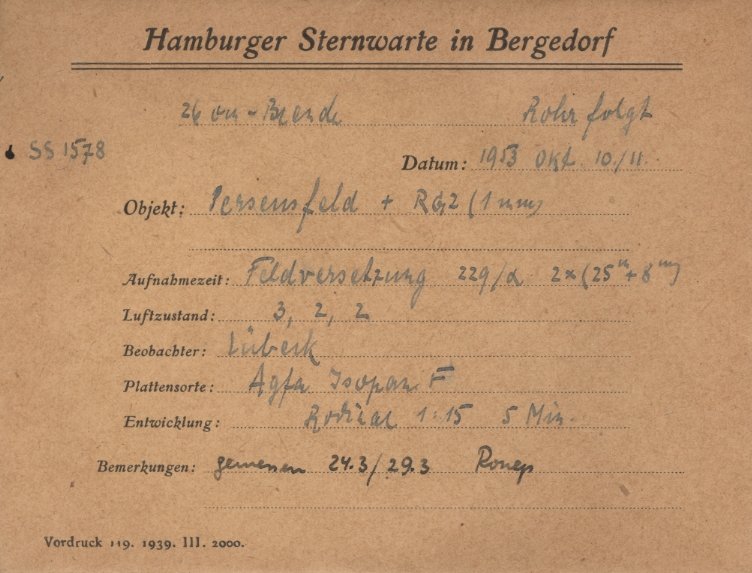 Hamburger Sternwarte in Bergedorf
26 cm-Blende Rohr folgt
SS 1578
Datum: 1953 Okt. 10/11.
Objekt: Perseusfeld + RG2 (1 mm)
Aufnahmezeit: Feldversetzung 229/α 2×(25ᵐ+8ᵐ)
Luftzustand: 3, 2, 2
Beobachter: Lübeck
Plattensorte: Agfa Isopan F
Entwicklung: Rodinal 1:15 5 Min.
Bemerkungen: gemessen 24.3/29.3
Vordruck 119. 1939. III. 2000.